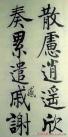 散慮逍遥欣
奏累遣慼謝